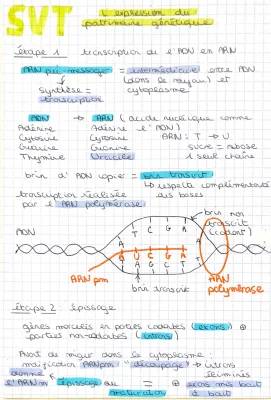 SVT
L'expression du
patrimoine génétique
étape 1 transcription de l'ADN en ARN
ARN pré-message = intermédiaire entre ADN
(dans le noyau) et
cytoplasme
synthèse =
transcription
ADN → ARN (acide nucléique comme
Adénine Adénine l'ADN)
Cytosine Cytosine ARN : T → U
Guanine Guanine sucre = ribose
Thymine Uracile 1 seul chaîne
brin d'ADN copier = brin transcrit
↳ respecte complémentarité
des bases
transcription réalisée
par l'ARN polymérase
brin non
transcrit
(codant)
ADN
A T C G A
A U C G A
T A G C T
ARNpm
brin transcrit
ARN
polymérase
étape 2 épissage
gènes morcelés en parties codantes (exons) ⊕
parties non-codantes (introns)
Avant de migrer dans le cytoplasme :
maturation ARNpm : découpage → introns
éliminés
donne
l'ARNm épissage ou = ⊕ exons mis bout à
maturation bout